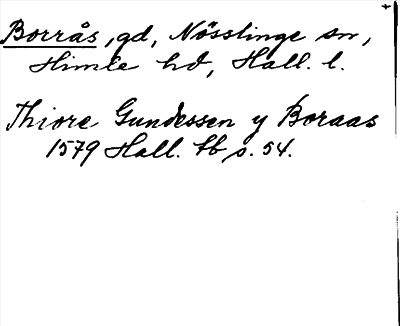 Borrås, gd, Nösslinge sn,
Himle hd, Hall. l.
Thiore Gundessen y Boraas
1579 Hall. tb s. 54.